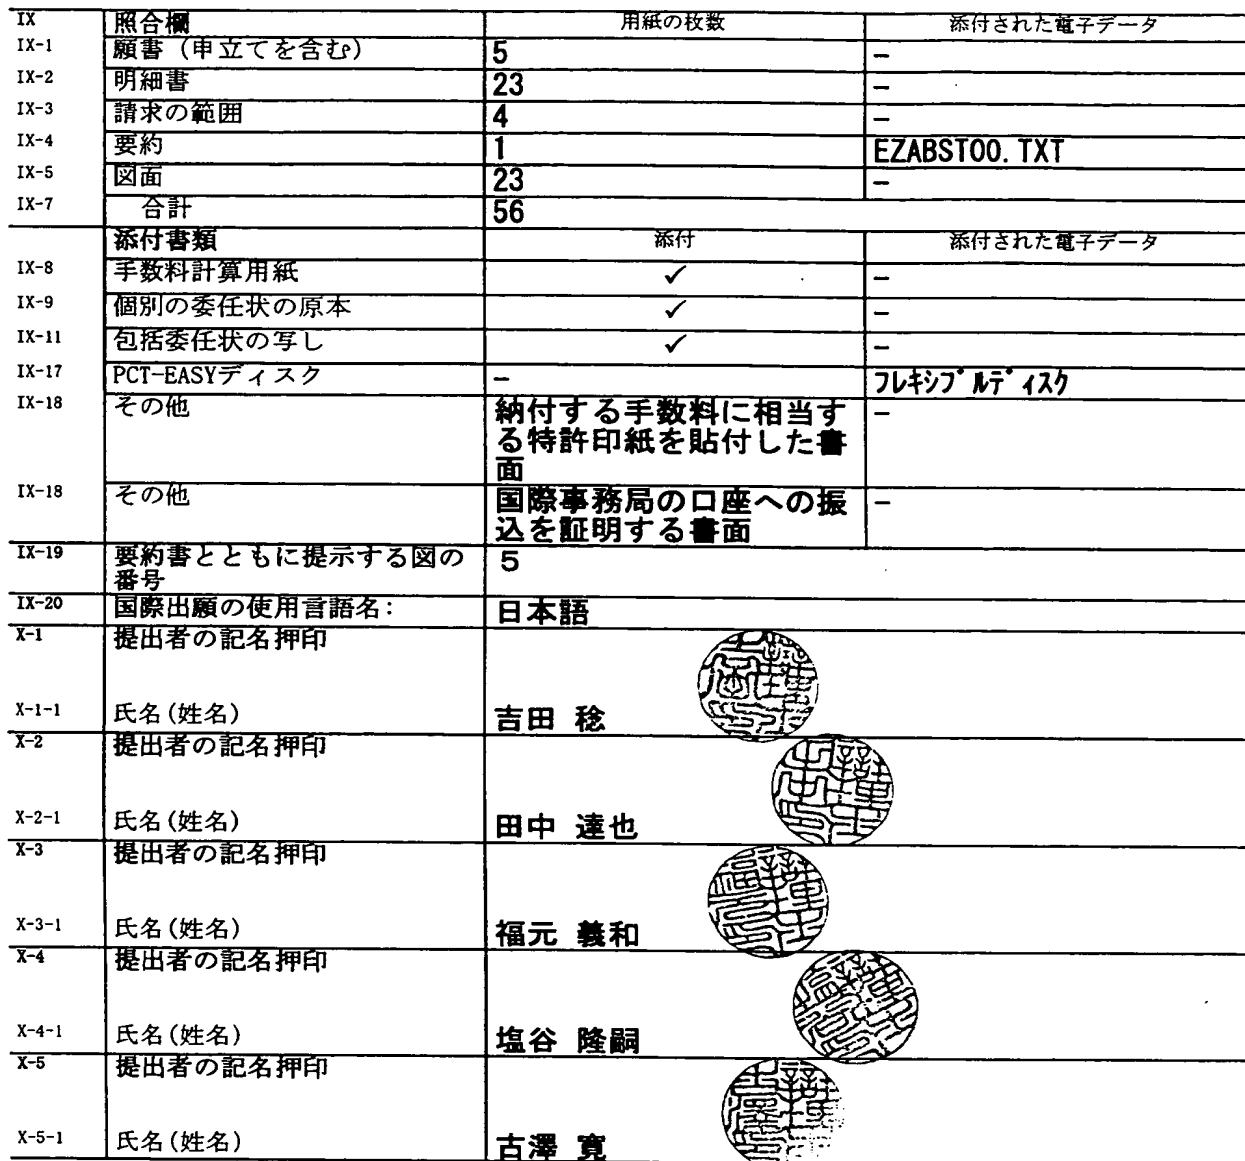 IX 照合欄 用紙の枚数 添付された電子データ
IX-1 願書（申立てを含む） 5 −
IX-2 明細書 23 −
IX-3 請求の範囲 4 −
IX-4 要約 1 EZABST00.TXT
IX-5 図面 23 −
IX-7 合計 56
添付書類 添付 添付された電子データ
IX-8 手数料計算用紙 ✓ −
IX-9 個別の委任状の原本 ✓ −
IX-11 包括委任状の写し ✓ −
IX-17 PCT-EASYディスク − フレキシブルディスク
IX-18 その他 納付する手数料に相当す −
る特許印紙を貼付した書
面
IX-18 その他 国際事務局の口座への振 −
込を証明する書面
IX-19 要約書とともに提示する図の 5
番号
IX-20 国際出願の使用言語名: 日本語
X-1 提出者の記名押印
X-1-1 氏名(姓名) 吉田 稔
X-2 提出者の記名押印
X-2-1 氏名(姓名) 田中 達也
X-3 提出者の記名押印
X-3-1 氏名(姓名) 福元 義和
X-4 提出者の記名押印
X-4-1 氏名(姓名) 塩谷 隆嗣
X-5 提出者の記名押印
X-5-1 氏名(姓名) 古澤 寛